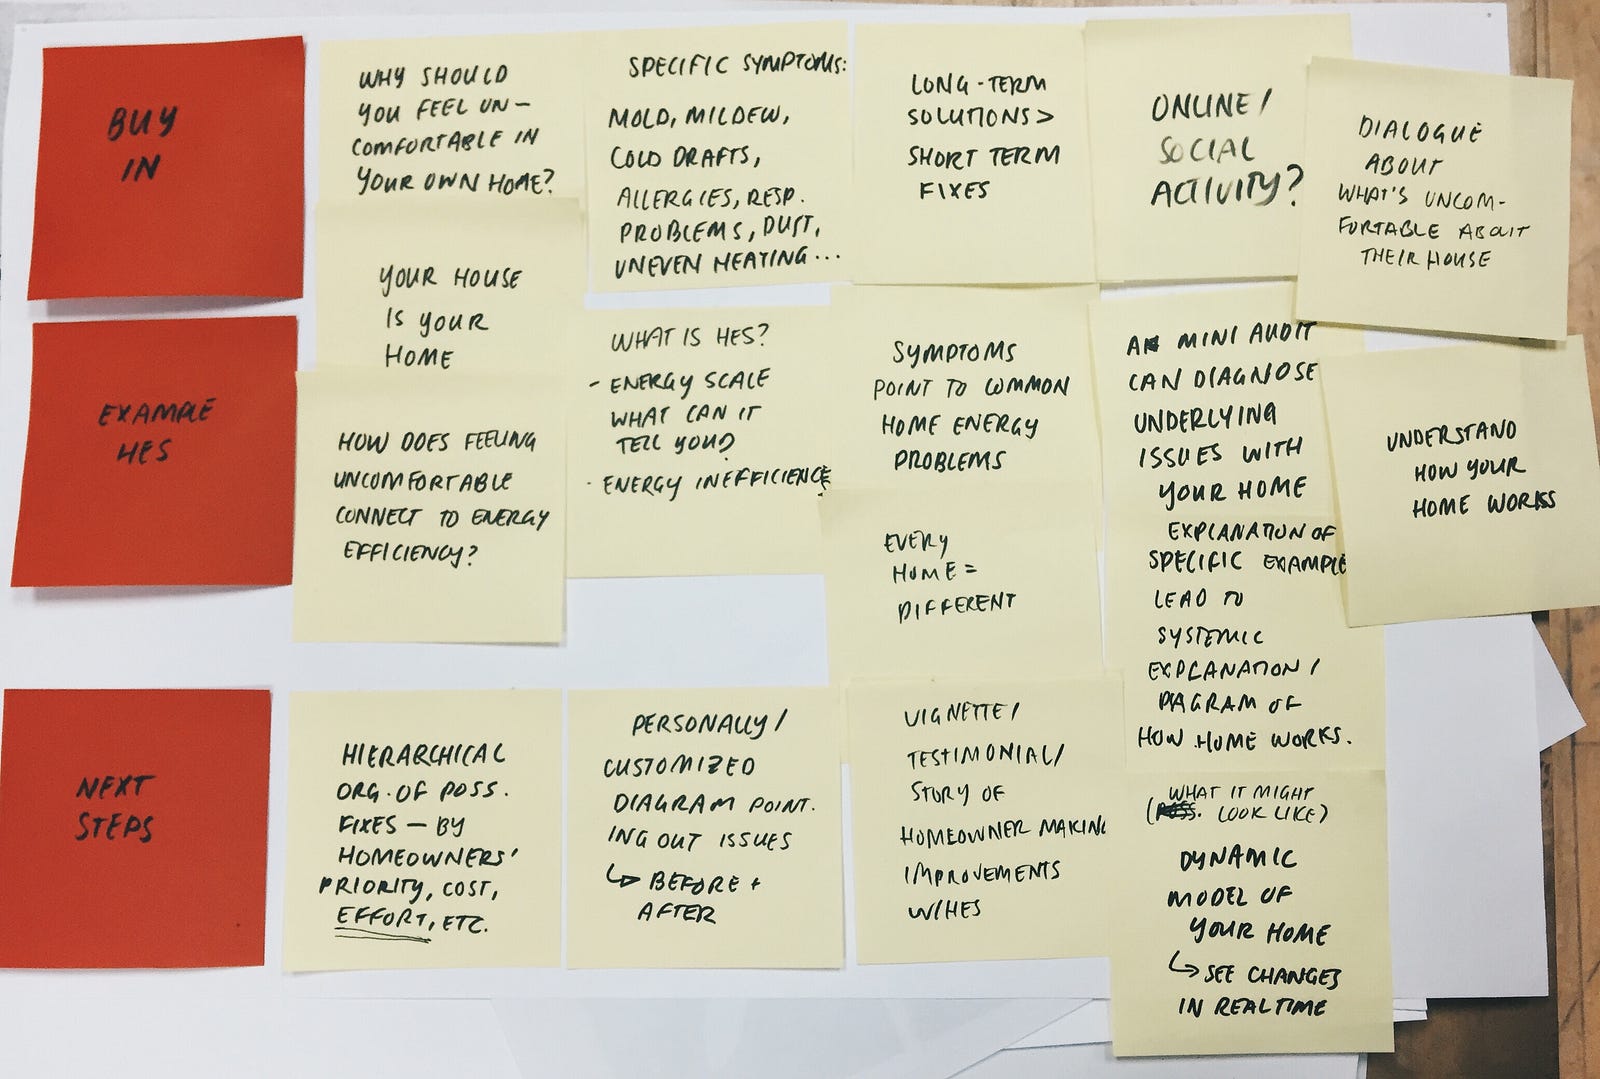 BUY
IN
WHY SHOULD
YOU FEEL UN-
COMFORTABLE IN
YOUR OWN HOME?
YOUR HOUSE
IS YOUR
HOME
SPECIFIC SYMPTOMS:
MOLD, MILDEW,
COLD DRAFTS,
ALLERGIES, RESP.
PROBLEMS, DUST,
UNEVEN HEATING...
LONG-TERM
SOLUTIONS >
SHORT TERM
FIXES
ONLINE /
SOCIAL
ACTIVITY?
DIALOGUE
ABOUT
WHAT'S UNCOM-
FORTABLE ABOUT
THEIR HOUSE
EXAMPLE
HES
HOW DOES FEELING
UNCOMFORTABLE
CONNECT TO ENERGY
EFFICIENCY?
WHAT IS HES?
- ENERGY SCALE
WHAT CAN IT
TELL YOU?
- ENERGY INEFFICIENCE
SYMPTOMS
POINT TO COMMON
HOME ENERGY
PROBLEMS
EVERY
HOME =
DIFFERENT
A MINI AUDIT
CAN DIAGNOSE
UNDERLYING
ISSUES WITH
YOUR HOME
EXPLANATION OF
SPECIFIC EXAMPLE
LEAD TO
SYSTEMIC
EXPLANATION /
DIAGRAM OF
HOW HOME WORKS.
UNDERSTAND
HOW YOUR
HOME WORKS
NEXT
STEPS
HIERARCHICAL
ORG. OF POSS.
FIXES — BY
HOMEOWNERS'
PRIORITY, COST,
EFFORT, ETC.
PERSONALLY /
CUSTOMIZED
DIAGRAM POINT.
ING OUT ISSUES
↳ BEFORE +
AFTER
VIGNETTE /
TESTIMONIAL /
STORY OF
HOMEOWNER MAKING
IMPROVEMENTS
W/HES
WHAT IT MIGHT
(POSS. LOOK LIKE)
DYNAMIC
MODEL OF
YOUR HOME
↳ SEE CHANGES
IN REALTIME